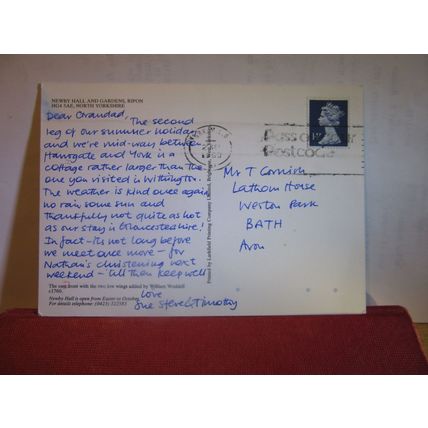 NEWBY HALL AND GARDENS, RIPON
HG4 5AE, NORTH YORKSHIRE
Dear Grandad,
The second
leg of our summer holiday
and we're mid-way between
Harrogate and York in a
cottage rather larger than the
one you visited in Withington.
The weather is kind once again
no rain, some sun and
thankfully not quite as hot
as our stay in Gloucestershire!
In fact - it's not long before
we meet once more - for
Nathan's christening next
weekend - till then keep well
Love
Sue Steve & Timothy
The east front with the two low wings added by William Weddell
c1760.
Newby Hall is open from Easter to October.
For details telephone: (0423) 322583
Printed by Larkfield Printing Company Limited,
Pass on your
Postcode
Mr T Cornish
Latham House
Weston Park
BATH
Avon